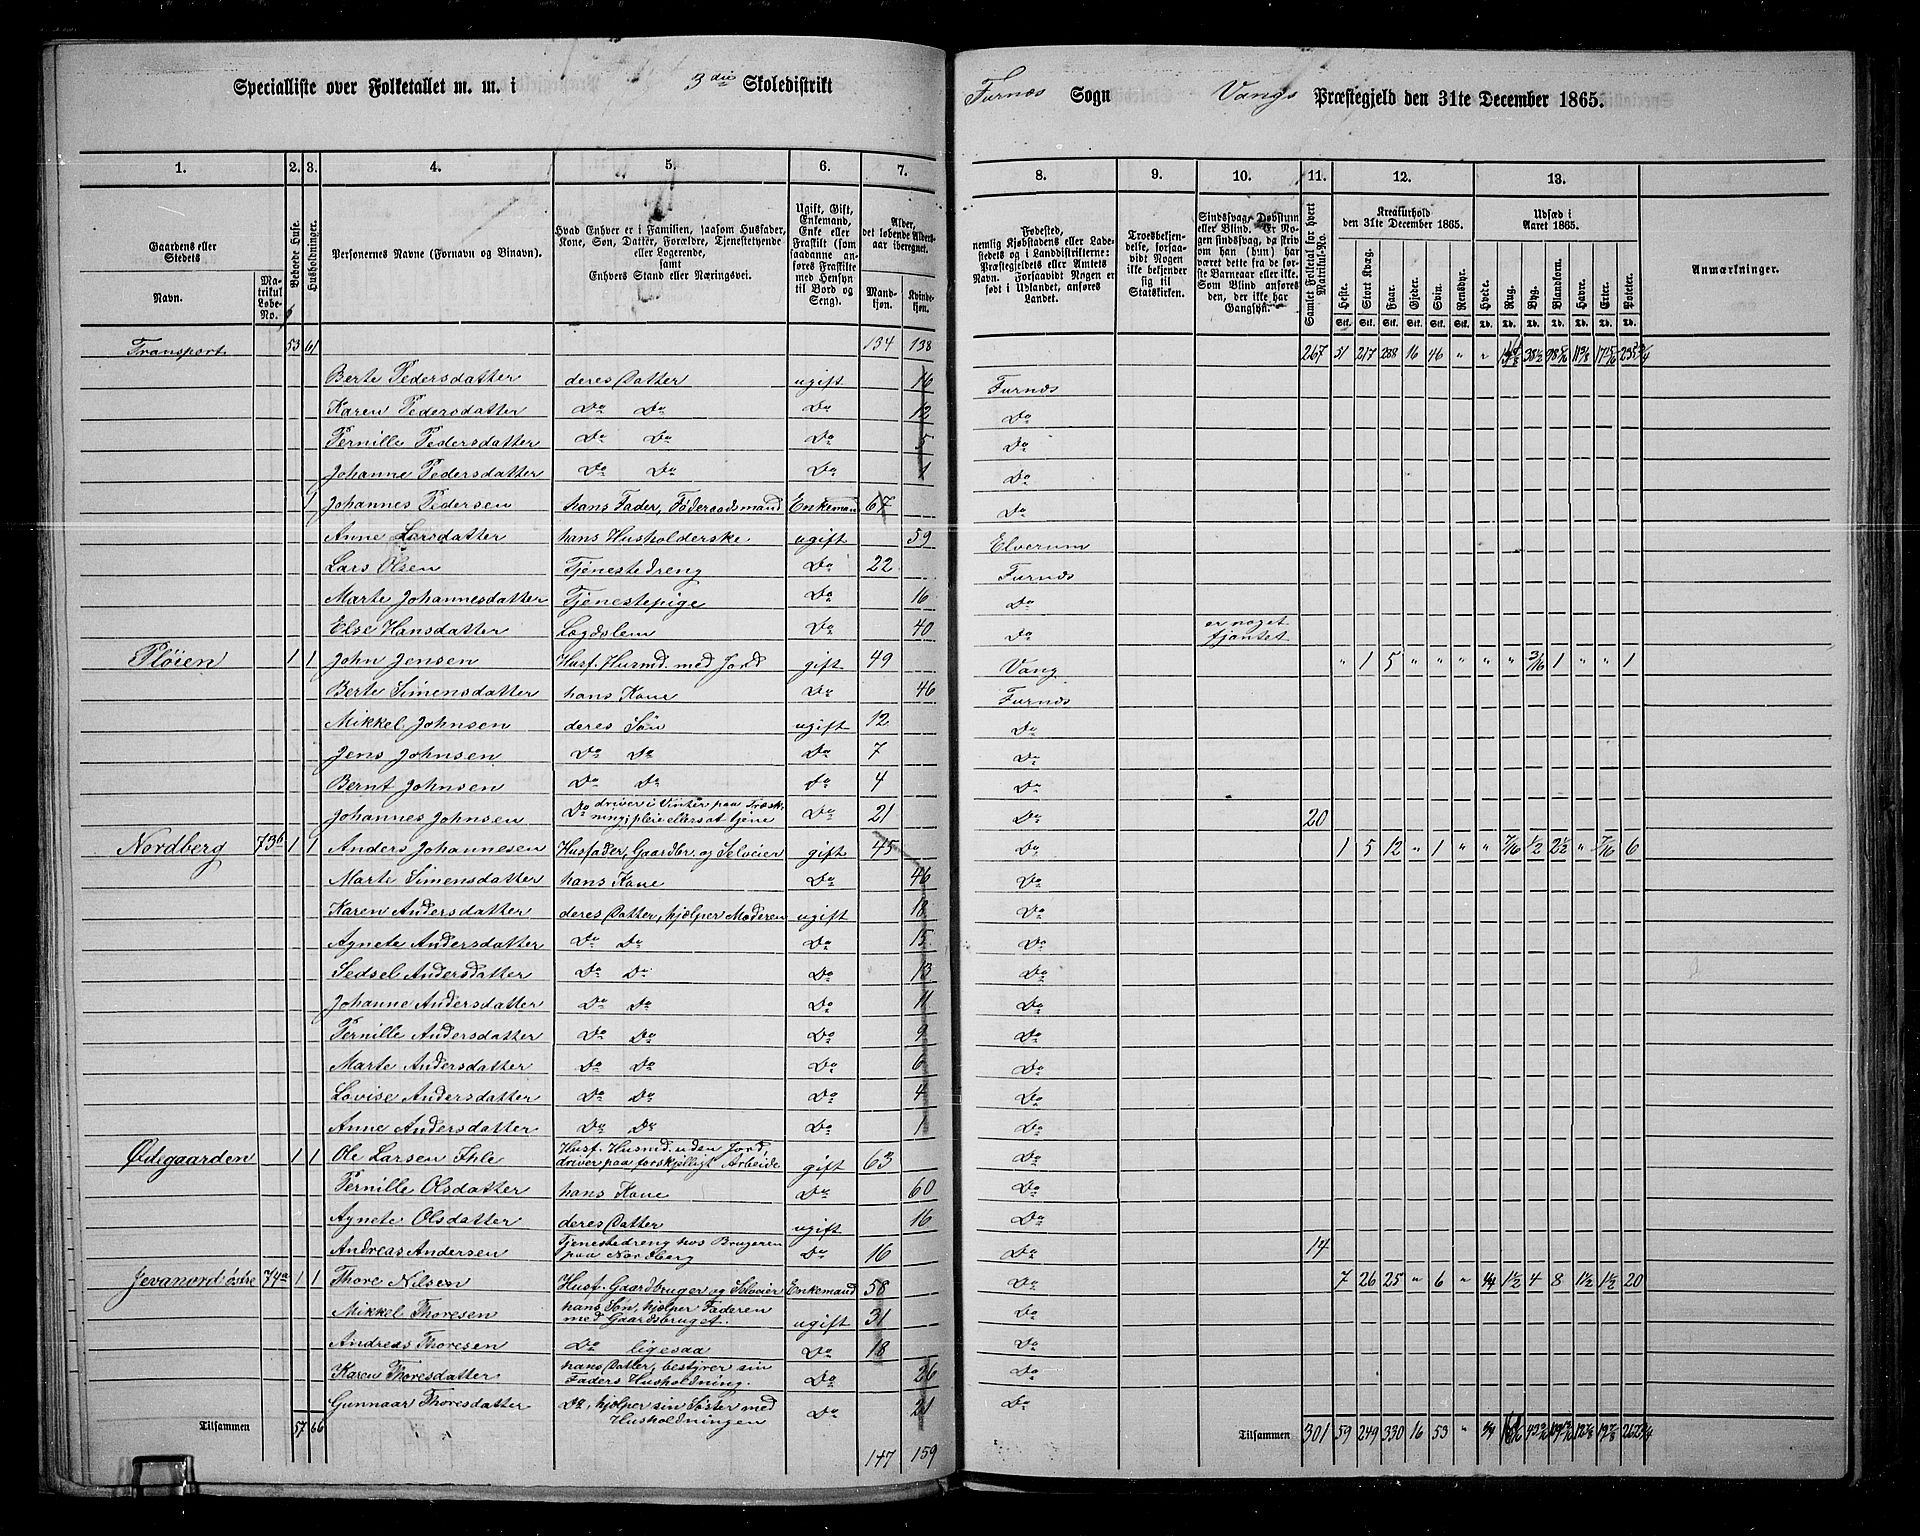 Specialliste over Folketallet m. m. i 3die Skoledistrikt Furnæs Sogn Vangs Præstegjeld den 31te December 1865.
1. 2. 3. 4. 5. 6. 7. 8. 9. 10. 11. 12. 13.
Gaardens eller Stedets
Navn.
Matrikul Løbe-No.
Beboede Huse.
Husholdninger.
Personernes Navne (Fornavn og Binavn).
Hvad Enhver er i Familien, saasom Husfader, Kone, Søn, Datter, Forældre, Tjenestetyende eller Logerende, samt Enhvers Stand eller Næringsvei.
Ugift, Gift, Enkemand, Enke eller Fraskilt (som saadanne anføres Fraskilte med Hensyn til Bord og Seng).
Alder, det løbende Aldersaar iberegnet.
Mandkjøn. Kvindekjøn.
Fødested, nemlig Kjøbstadens eller Ladestedets og i Landdistrikterne: Præstegjeldets eller Amtets Navn. Forsaavidt Nogen er født i Udlandet, anføres Landet.
Troesbekjendelse, forsaavidt Nogen ikke bekjender sig til Statskirken.
Sindssvag, Døvstum eller Blind. Er Nogen sindssvag, da skriv om han (hun) har været dette fra de første Barneaar eller ikke. Som Blind anføres den, der ikke har Gangsyn.
Samlet Folketal for hvert Matrikul-No.
Kreaturhold den 31te December 1865.
Heste. Stort Kvæg. Faar. Gjeder. Svin. Rensdyr.
Udsæd i Aaret 1865.
Hvede. Rug. Byg. Blandkorn. Havre. Erter. Poteter.
Anmærkninger.
Stk. Stk. Stk. Stk. Stk. Stk. Td. Td. Td. Td. Td. Td. Td.
Transport 53 61 134 138 267 51 217 288 16 46 " "
Berte Pedersdatter deres Datter ugift 16 Furnæs
Karen Pedersdatter Do Do Do 12 Do
Pernille Pedersdatter Do Do Do 5 Do
Johanne Pedersdatter Do Do Do 1 Do
1 Johannes Pedersen hans Fader, Føderaadsmand Enkemand 67 Do
Anne Larsdatter hans Husholderske ugift 59 Elverum
Lars Olsen Tjenestedreng Do 22 Furnæs
Marte Johannesdatter Tjenestepige Do 16 Do
Else Hansdatter Lægdslem Do 40 Do er noget fjantet
Pløien 1 1 John Jensen Husf. Husmd. med Jord gift 49 Vang " 1 5 " " " " " 3/16 1 " " 1
Berte Simensdatter hans Kone Do 46 Furnæs
Mikkel Johnsen deres Søn ugift 12 Do
Jens Johnsen Do Do Do 7 Do
Bernt Johnsen Do Do Do 4 Do
Johannes Johnsen Do driver i Vinter paa Træskning, pleie ellers at tjene Do 21 Do 20
Nordberg 73b 1 1 Anders Johannesen Husfader, Gaardbr. og Selveier gift 45 Do 1 5 12 " 1 " " 7/16 1/2 2 1/2 " 7/16 6
Marte Simensdatter hans Kone Do 46 Do
Karen Andersdatter deres Datter, hjælper Moderen ugift 18 Do
Agnete Andersdatter Do Do Do 15 Do
Sedsel Andersdatter Do Do Do 13 Do
Johanne Andersdatter Do Do Do 11 Do
Pernille Andersdatter Do Do Do 9 Do
Marte Andersdatter Do Do Do 6 Do
Lovise Andersdatter Do Do Do 4 Do
Anne Andersdatter Do Do Do 1 Do
Ødegaarden 1 1 Ole Larsen Ihle Husf. Husmd. uden Jord, driver paa forskjelligt Arbeide gift 63 Do
Pernille Olsdatter hans Kone Do 60 Do
Agnete Olsdatter deres Datter ugift 16 Do
Andreas Andersen Tjenestedreng hos Brugeren paa Nordberg Do 16 Do 14
Jevanord østre 74a 1 1 Thore Nilsen Husf. Gaardbruger og Selveier Enkemand 58 Do 7 26 25 " 6 " 1/4 1 1/2 4 8 1 1/2 1 1/2 20
Mikkel Thoresen hans Søn, hjælper Faderen med Gaardsbruget. ugift 31 Do
Andreas Thoresen Do ligesaa Do 18 Do
Karen Thoresdatter hans Datter, bestyrer sin Faders Husholdning. Do 26 Do
Gunnaar Thoresdatter Do, hjælper sin Søster med Husholdningen Do 21 Do
Tilsammen 57 66 147 159 Tilsammen 301 59 249 330 16 53 "